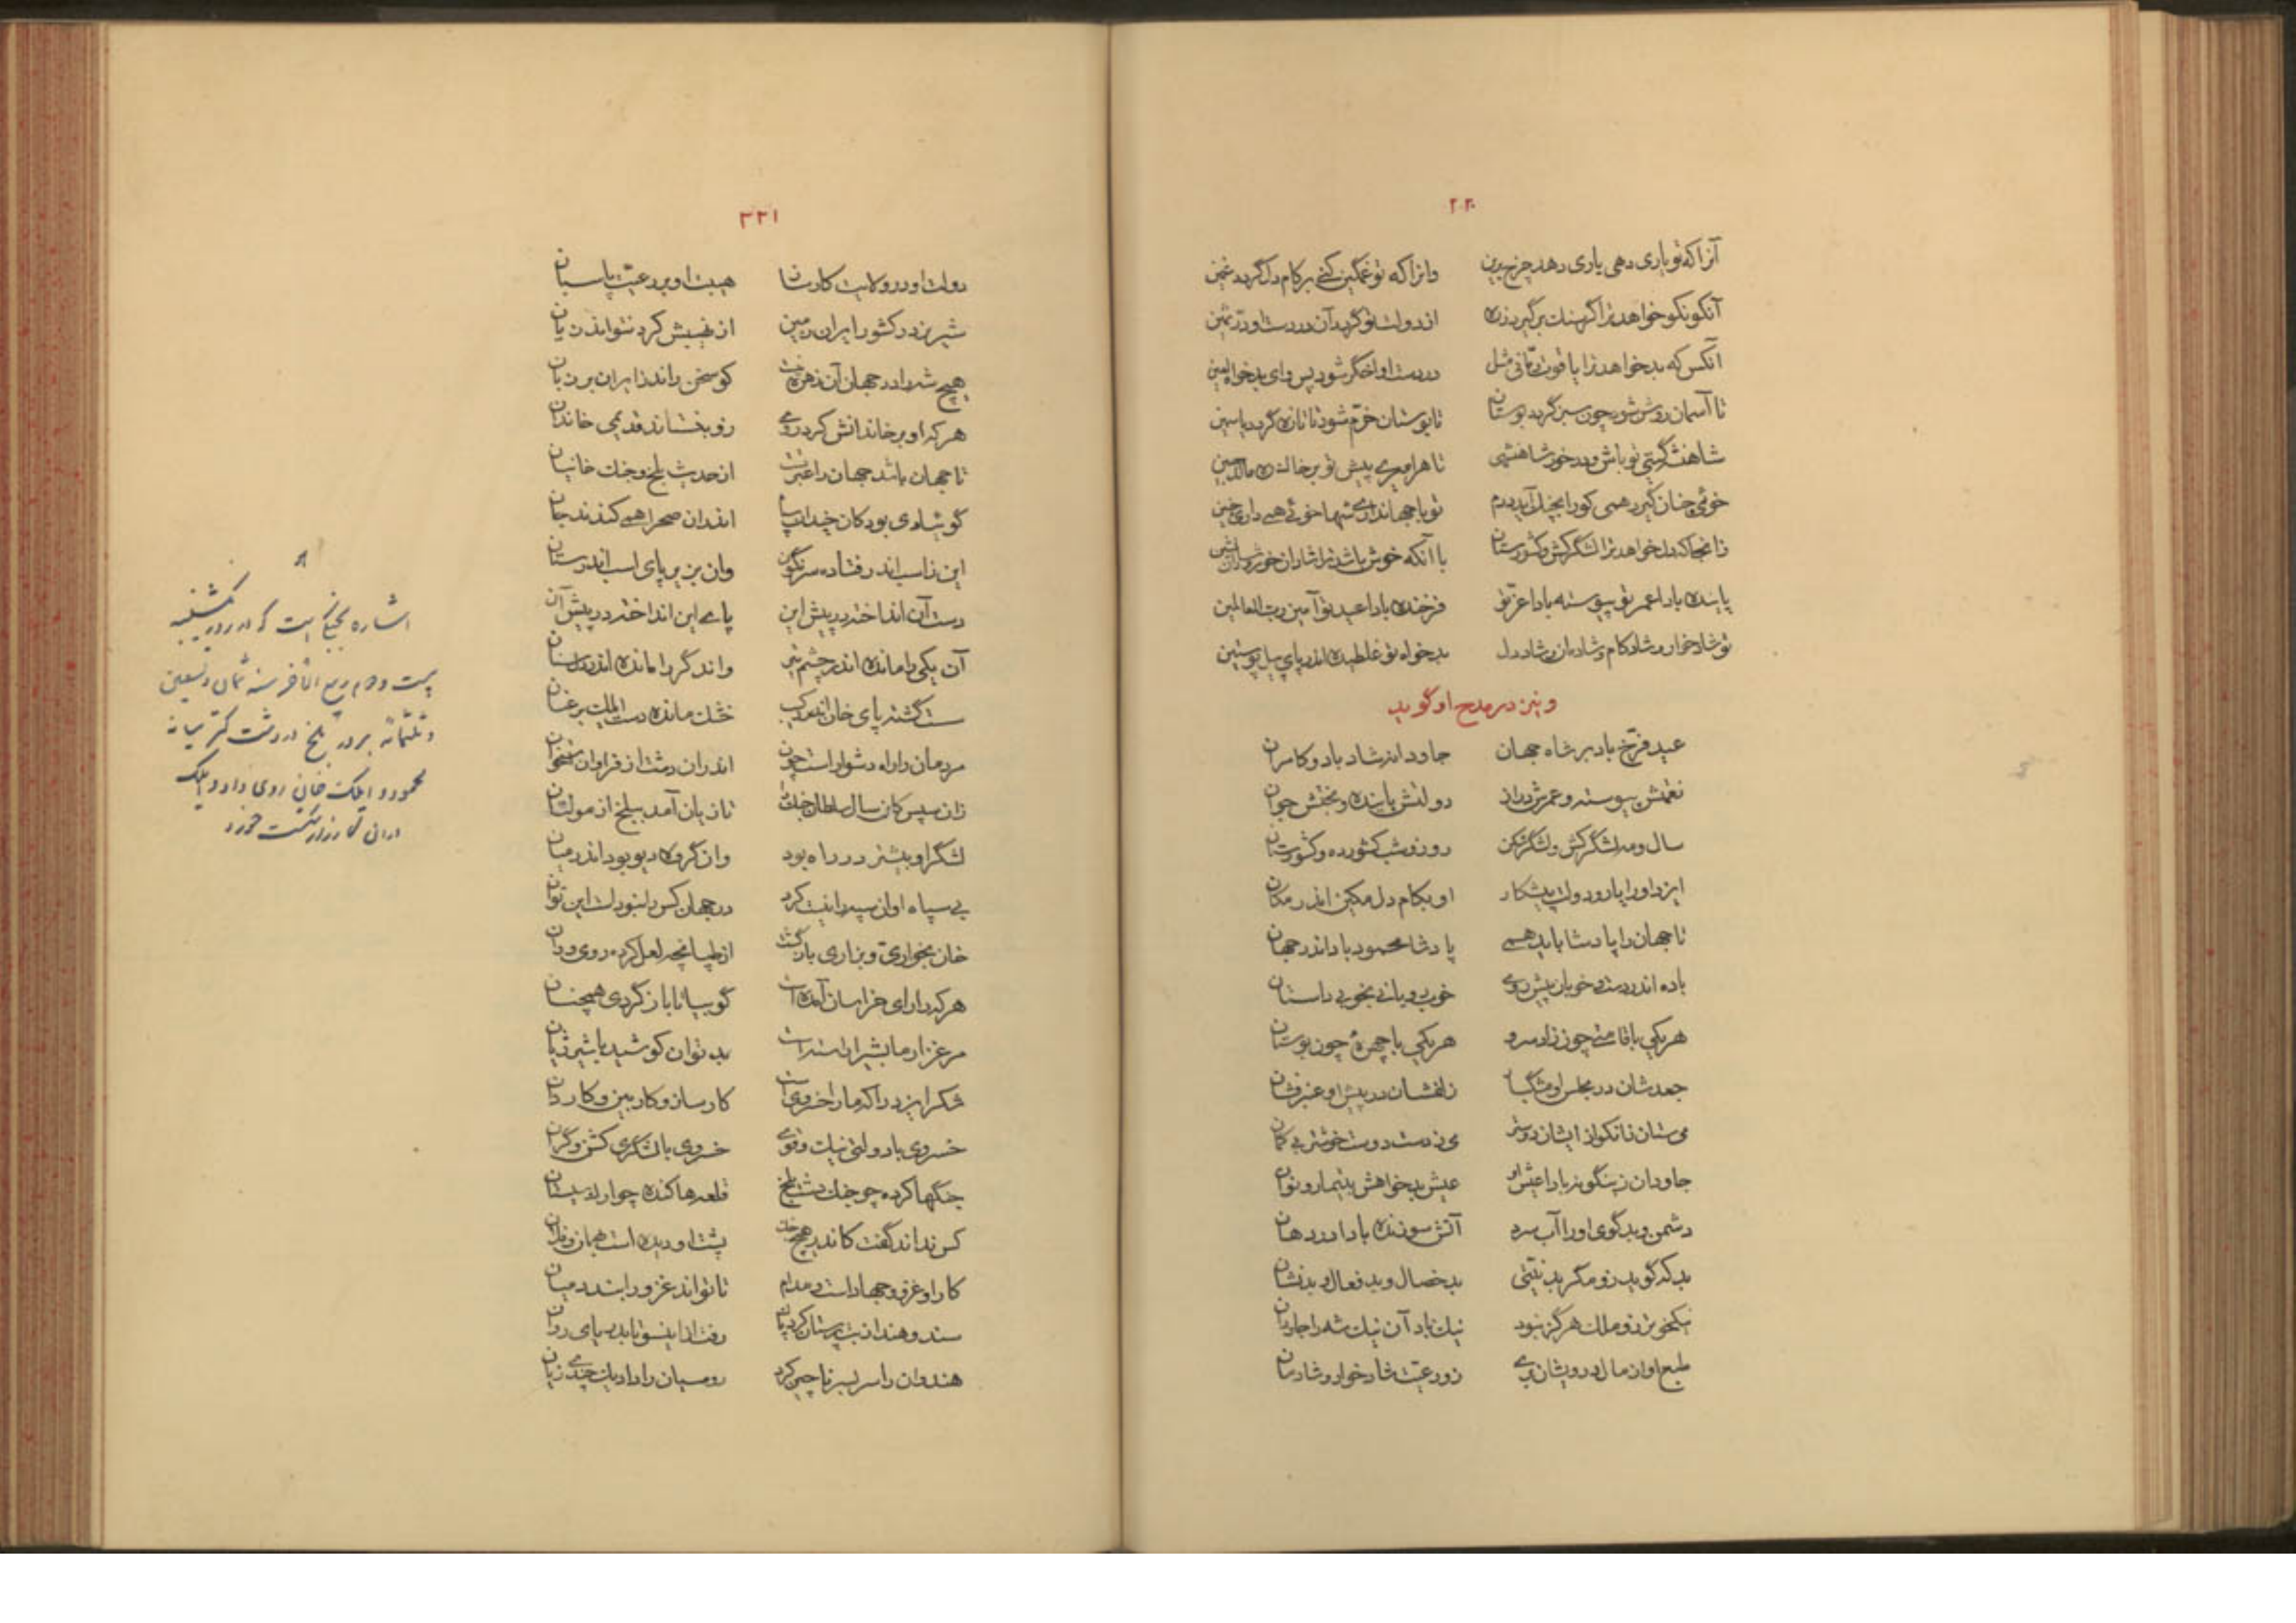 ۲۲۰
آنرا که تو یاری دهی یاری دهد چرخ برین وانرا که تو غمگین کنی بر کام دل گردد غمین
آنکو نکو خواهد ترا گر سنگ برگیرد ز ره از دولت تو گردد آن در دست او در ثمین
آنکس که بد خواهد ترا یاقوت رمانی مثل در دست او اخگر شود پس وای بدخواه لعین
تا آسمان روشن شود چون سبز گردد بوستان تا بوستان خرم شود تا تازه گردد یاسمین
شاهنشه گیتی تو باش و در خور شاهنشهی تا هر امیری پیش تو بر خاک ره مالد جبین
خوئی چنان گیرد همی کو را بخیل آید درم تو با جهانداری شها خوئی همی داری چنین
زانجا که دل خواهد ترا لشگرکش و کشورستان با آنکه خوش باشد ترا شادان خور و شادان نشین
پاینده بادا عمر تو پیوسته بادا عز تو فرخنده بادا عید تو آمین رب العالمین
تو شادخوار و شادکام و شادمان و شاددل بدخواه تو غلطیده اندر پای پیل پوستین
و نیز در مدح او گوید
عید فرخ باد بر شاه جهان جاودانه شاد باد و کامران
نعمتش پیوسته و عمرش دراز دولتش پاینده و بختش جوان
سال و مه لشگرکش و لشگرشکن روز و شب کشورده و کشورستان
ایزد او را یار و دولت پیشکار او بکام دل مکین اندر مکان
تا جهان را پادشا باید همی پادشا محمود باد اندر جهان
باده اندر دست و خوبان پیش روی خوبرویانی بخوبی داستان
هر یکی با قامتی چون زاد سرو هر یکی با چهرهٔ چون بوستان
جعدشان در مجلس او مشگسا زلفشان در پیش او عنبرفشان
می ستان زانکو از ایشان دوستر می ز دست دوست خوشتر بی گمان
جاودان زینگونه بادا عیش او عیش بدخواهش بتیمار و نوان
دشمن و بدگوی او را آب سرد آتش سوزنده بادا در دهان
بد که گوید زو مگر بدنیتی بدخصال و بدفعال و بدنشان
نیکخوتر زو ملک هرگز نبود نیک باد آن نیک شه را جاودان
طبع او از مال درویشان بری زو رعیت شادخوار و شادمان
۲۲۱
دولت او در ولایت کارساز هیبت او بر رعیت پاسبان
شیر نر در کشور ایران زمین از نهیبش کرد نتواند زیان
هیچ شه را در جهان آن زهره نیست کو سخن راند ز ایران بر زبان
هرکه او بر خاندانش کرد روی زو بخشاند قدیمی خاندان
تا جهان باشد جهان را عبرتست از حدیث بلخ و جنگ خانیان
گوشهٔ بود کان چندان سپاه اندران صحرا همی کندند جان
این ز اسب اندر فتاده سرنگون وان بزیر پای اسب اندر ستان
دست آن انداخته در پیش این پای این انداخته در پیش آن
آن یکی را مانده اندر چشم تیر واندگر را مانده اندر دل سنان
سست گشته پای خان اندر رکیب خشک مانده دست ایلک بر عنان
مردمان را راه دشوار است چون اندران دشت از فراوان استخوان
زان سپس کان سال سلطان جنگ تازیان آمد ببلخ از مولتان
لشگر او بیشتر در راه بود وان گروه دیو بود اندر میان
بی سپاه او آن سپه را نیست کرد در جهان کس را نبود است این توان
خان بخواری و بزاری بازگشت از طپانچه لعل کرده روی و ران
هرکه دارای خراسان آمده است گو بیا تا باز گردی همچنان
مرغزار ما بشیر آراسته است بد توان کوشید با شیر ژیان
شکر ایزد را که ما را خسروی است کارساز و کاربین و کاردان
خسروی با دولتی نیک و قوی خسروی با لشگری گشن و گران
جنگها کرده چو جنگ دشت بلخ قلعه‌ها کنده چو ارک سیستان
کس نداند گفت کاندر هیچ جنگ پشت او دیده است بهمان و فلان
کار او غزو و جهاد است و مدام تا تواند غزو را بندد میان
سند و هند از بت پرستان کرد پاک رفت ازینسو تا بدریای روان
هندوان را سر بسر ناچیز کرد رومیان را داد یک چندی زبان
اشاره بجنگی است که در روز یکشنبه
بیست و دوم ربیع الآخر سنه ثمان و تسعین
و ثلثمائه بر در بلخ در دشت کتر میانه
محمود و ایلک خان روی داد و ایلک
در آن کارزار شکست خورد